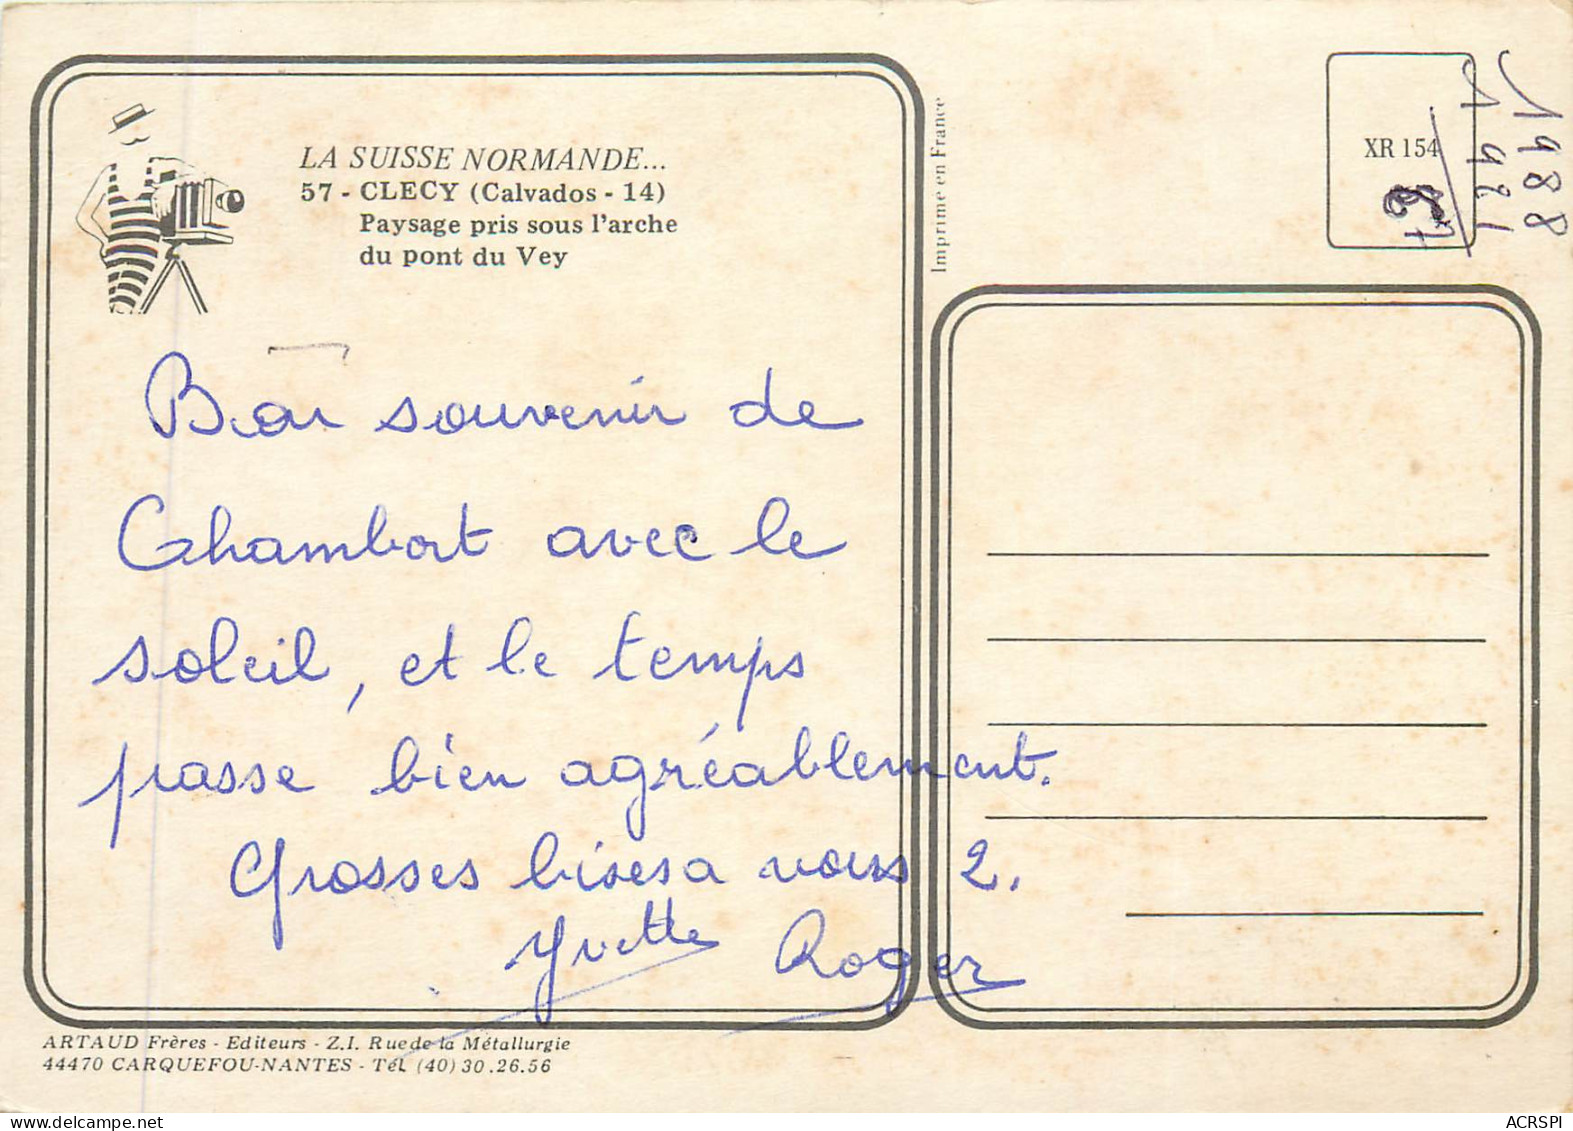 LA SUISSE NORMANDE...
57 - CLECY (Calvados - 14)
Paysage pris sous l'arche
du pont du Vey
Bon souvenir de
Chambort avec le
soleil, et le temps
passe bien agréablement.
Grosses bises a vous 2.
Yvette Roger
ARTAUD Frères - Editeurs - Z.I. Rue de la Métallurgie
44470 CARQUEFOU-NANTES - Tél. (40) 30.26.56
Imprimé en France
XR 154
1988
1921
ACRSPI